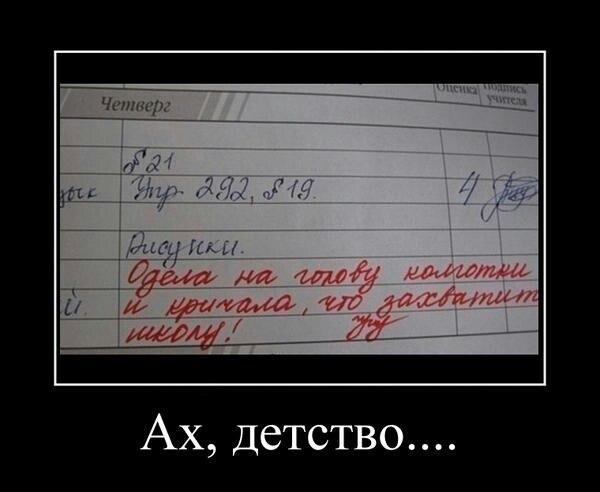 Оценка Подпись учителя
Четверг
§ 21
зык Упр 292, § 19. 4
Рисунки.
Одела на голову колготки
й. и кричала, что захватит
школу!
Ах, детство....